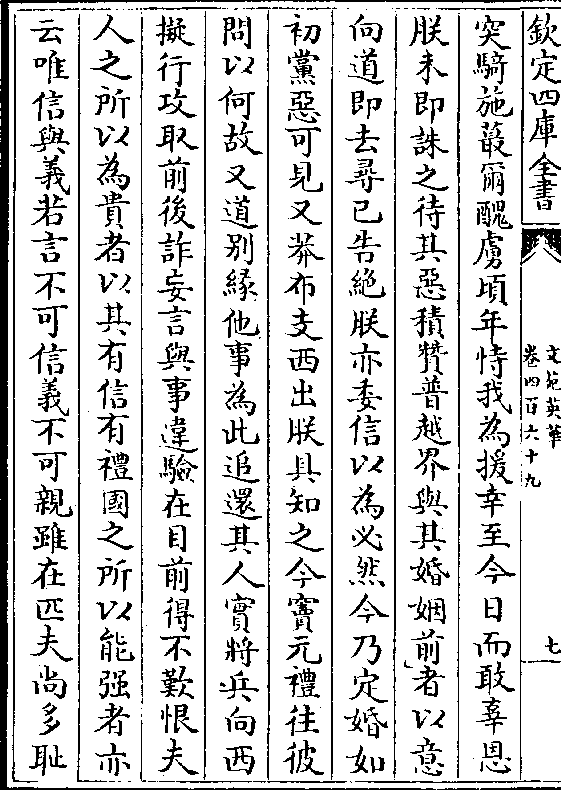 欽定四庫全書
文苑英華
卷四百六十九
七
突騎施蕞爾醜虜頃年恃我為援幸至今日而敢辜恩
朕未即誅之待其惡積贊普越界與其婚姻前者以意
向道即去尋已告絶朕亦委信以為必然今乃定婚如
初黨惡可見又莽布支西出朕具知之今竇元禮往彼
問以何故又道别緣他事為此追還其人實將兵向西
擬行攻取前後詐妄言與事違驗在目前得不歎恨夫
人之所以為貴者以其有信有禮國之所以能强者亦
云唯信與義若言不可信義不可親雖在匹夫尚多恥